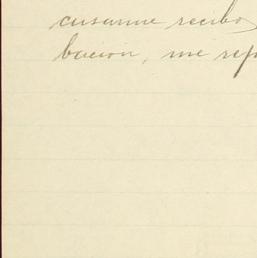 cusarme recibo
bucion, me rep